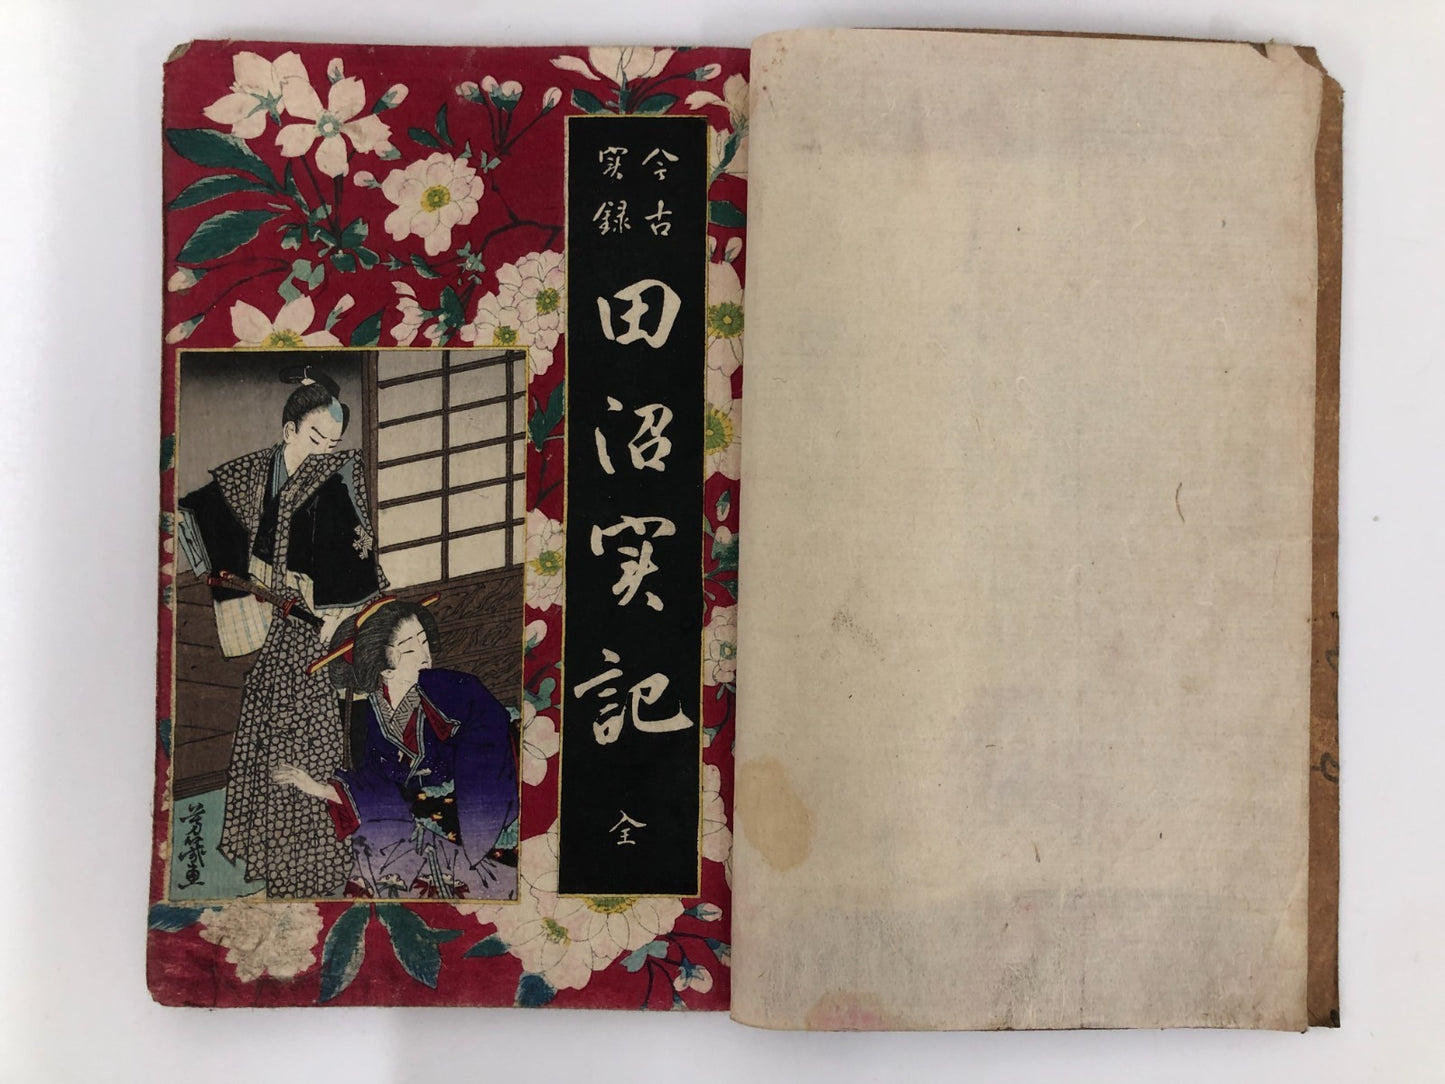 今古
実録
田沼実記
全
芳幾画